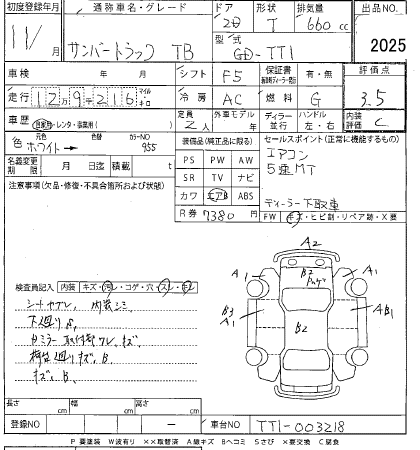 初度登録年月 通称車名・グレード ドア 形状 排気量 出品NO.
11/ サンバートラック TB 2D T 660cc
型式 GD-TT1 2025
車検 年 月 シフト F5 保証書 有・無 評価点
走行 12万9千216 マイル キロ 冷房 AC 燃料 G 3.5
車歴 自家用・レンタ・事業用( ) 定員 2人 外車モデル 年 ディーラー 並行 ハンドル 左・右 内装評価 C
色 元色 ホワイト→ カラーNO 955
装備品(純正品に限る) セールスポイント(正常に機能するもの)
PS PW AW エアコン
名義変更期限 月 日迄 積載 t SR TV ナビ 5速MT
注意事項(欠品・修復・不具合箇所および状態) カワ エアB ABS ディーラー下取車
R券 7380円 FW キズ・ヒビ割・リペア跡・X要
A2
A1 B2 A1
B3 A1 B2 AB1
検査員記入 内装 キズ・汚レ・コゲ・穴・スレ・
シートヤブレ、内装シミ
下廻りS
キズ、B
長さ cm 幅 cm 高さ cm
登録NO ー 車台NO TT1-003218
P 要塗装 W波有り ××取替済 A線キズ Bヘコミ Sさび ×要交換 C腐食